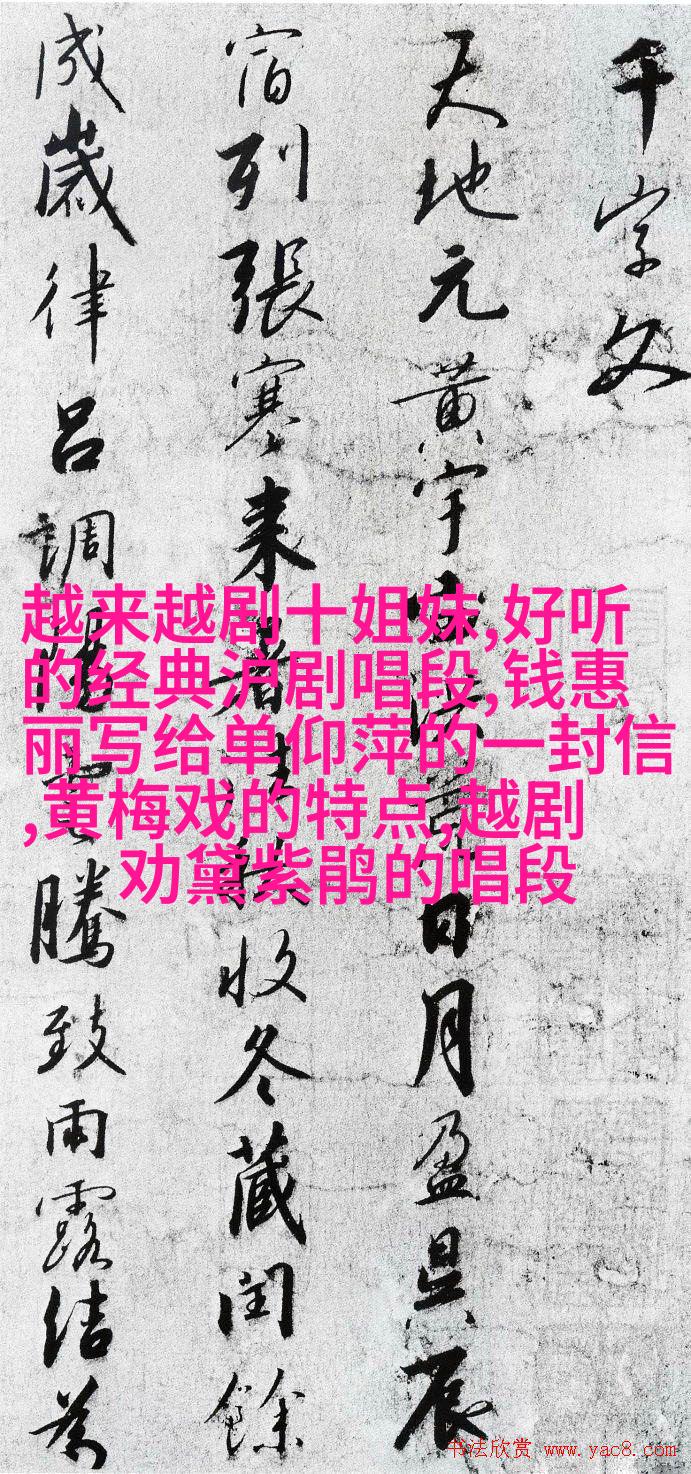 千字文
天地元黄宇日月盈昃辰
宿列張寒来暑收冬藏閏餘
成歲律呂調騰致雨露結為
越来越剧十姐妹,好听
的经典沪剧唱段,钱惠
丽写给单仰萍的一封信
,黄梅戏的特点,越剧
劝黛紫鹃的唱段
书法欣赏 www.yac8.com